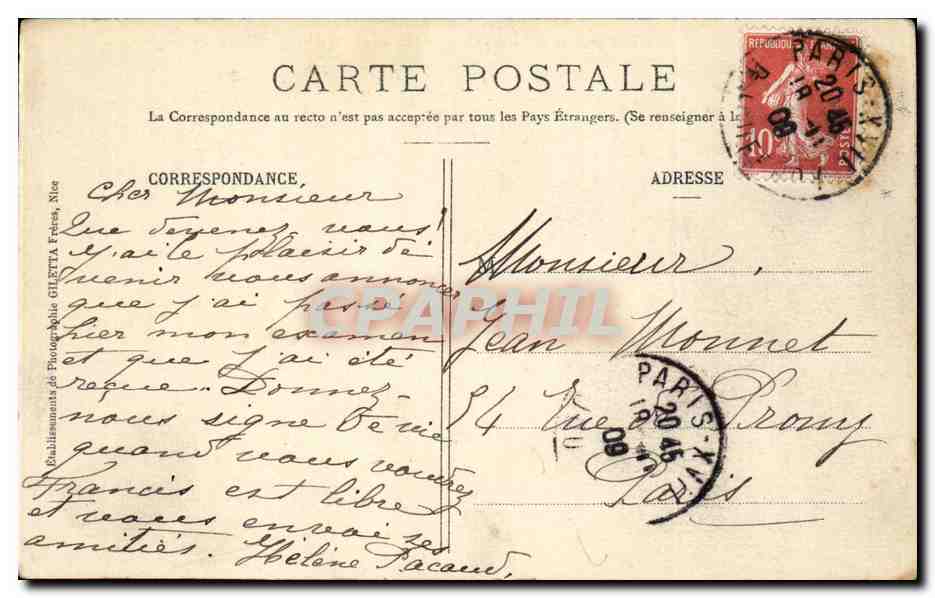 CARTE POSTALE
La Correspondance au recto n'est pas acceptée par tous les Pays Étrangers. (Se renseigner à la
CORRESPONDANCE
Cher Monsieur
Que devenez vous!
J'ai le plaisir de
venir vous annoncer
que j'ai passé
hier mon examen
et que j'ai été
reçue. Donnez-
nous signe de vie
quand vous voudrez
Francis est libre
et vous envoi ses
amitiés. Hélène Pacaud,
ADRESSE
Monsieur,
Jean Monnet
54 Rue de Prony
Paris
Établissements de Photographie GILETTA Frères, Nice
REPUBLIQUE FRANÇAISE
10
POSTES
PARIS - XVII
20 45
09
PARIS - XVII
20 45
09
CPAPHIL